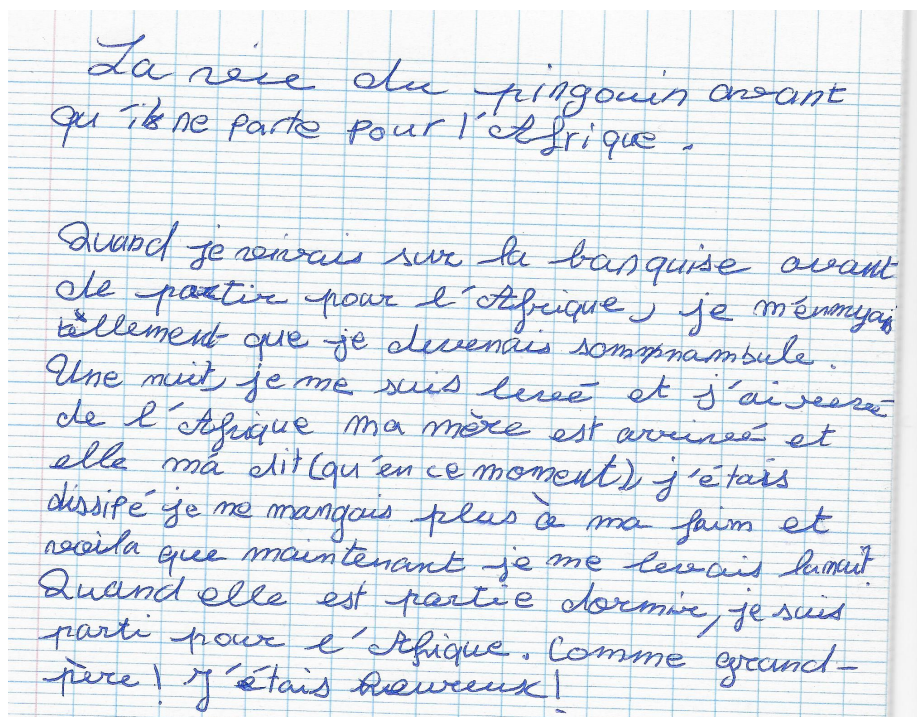 La vie du pingouin avant
qu'il ne parte pour l'Afrique.
Quand je vivais sur la banquise avant
de partir pour l'Afrique, je m'ennyais
tellement que je devenais sommnambule.
Une nuit, je me suis levé et j'ai revé
de l'Afrique ma mère est arrivée et
elle ma dit (qu'en ce moment), j'étais
dissipé je ne mangais plus à ma faim et
voila que maintenant je me levais la nuit.
Quand elle est partie dormir, je suis
parti pour l'Afrique. Comme grand-
père ! J'étais heureux !